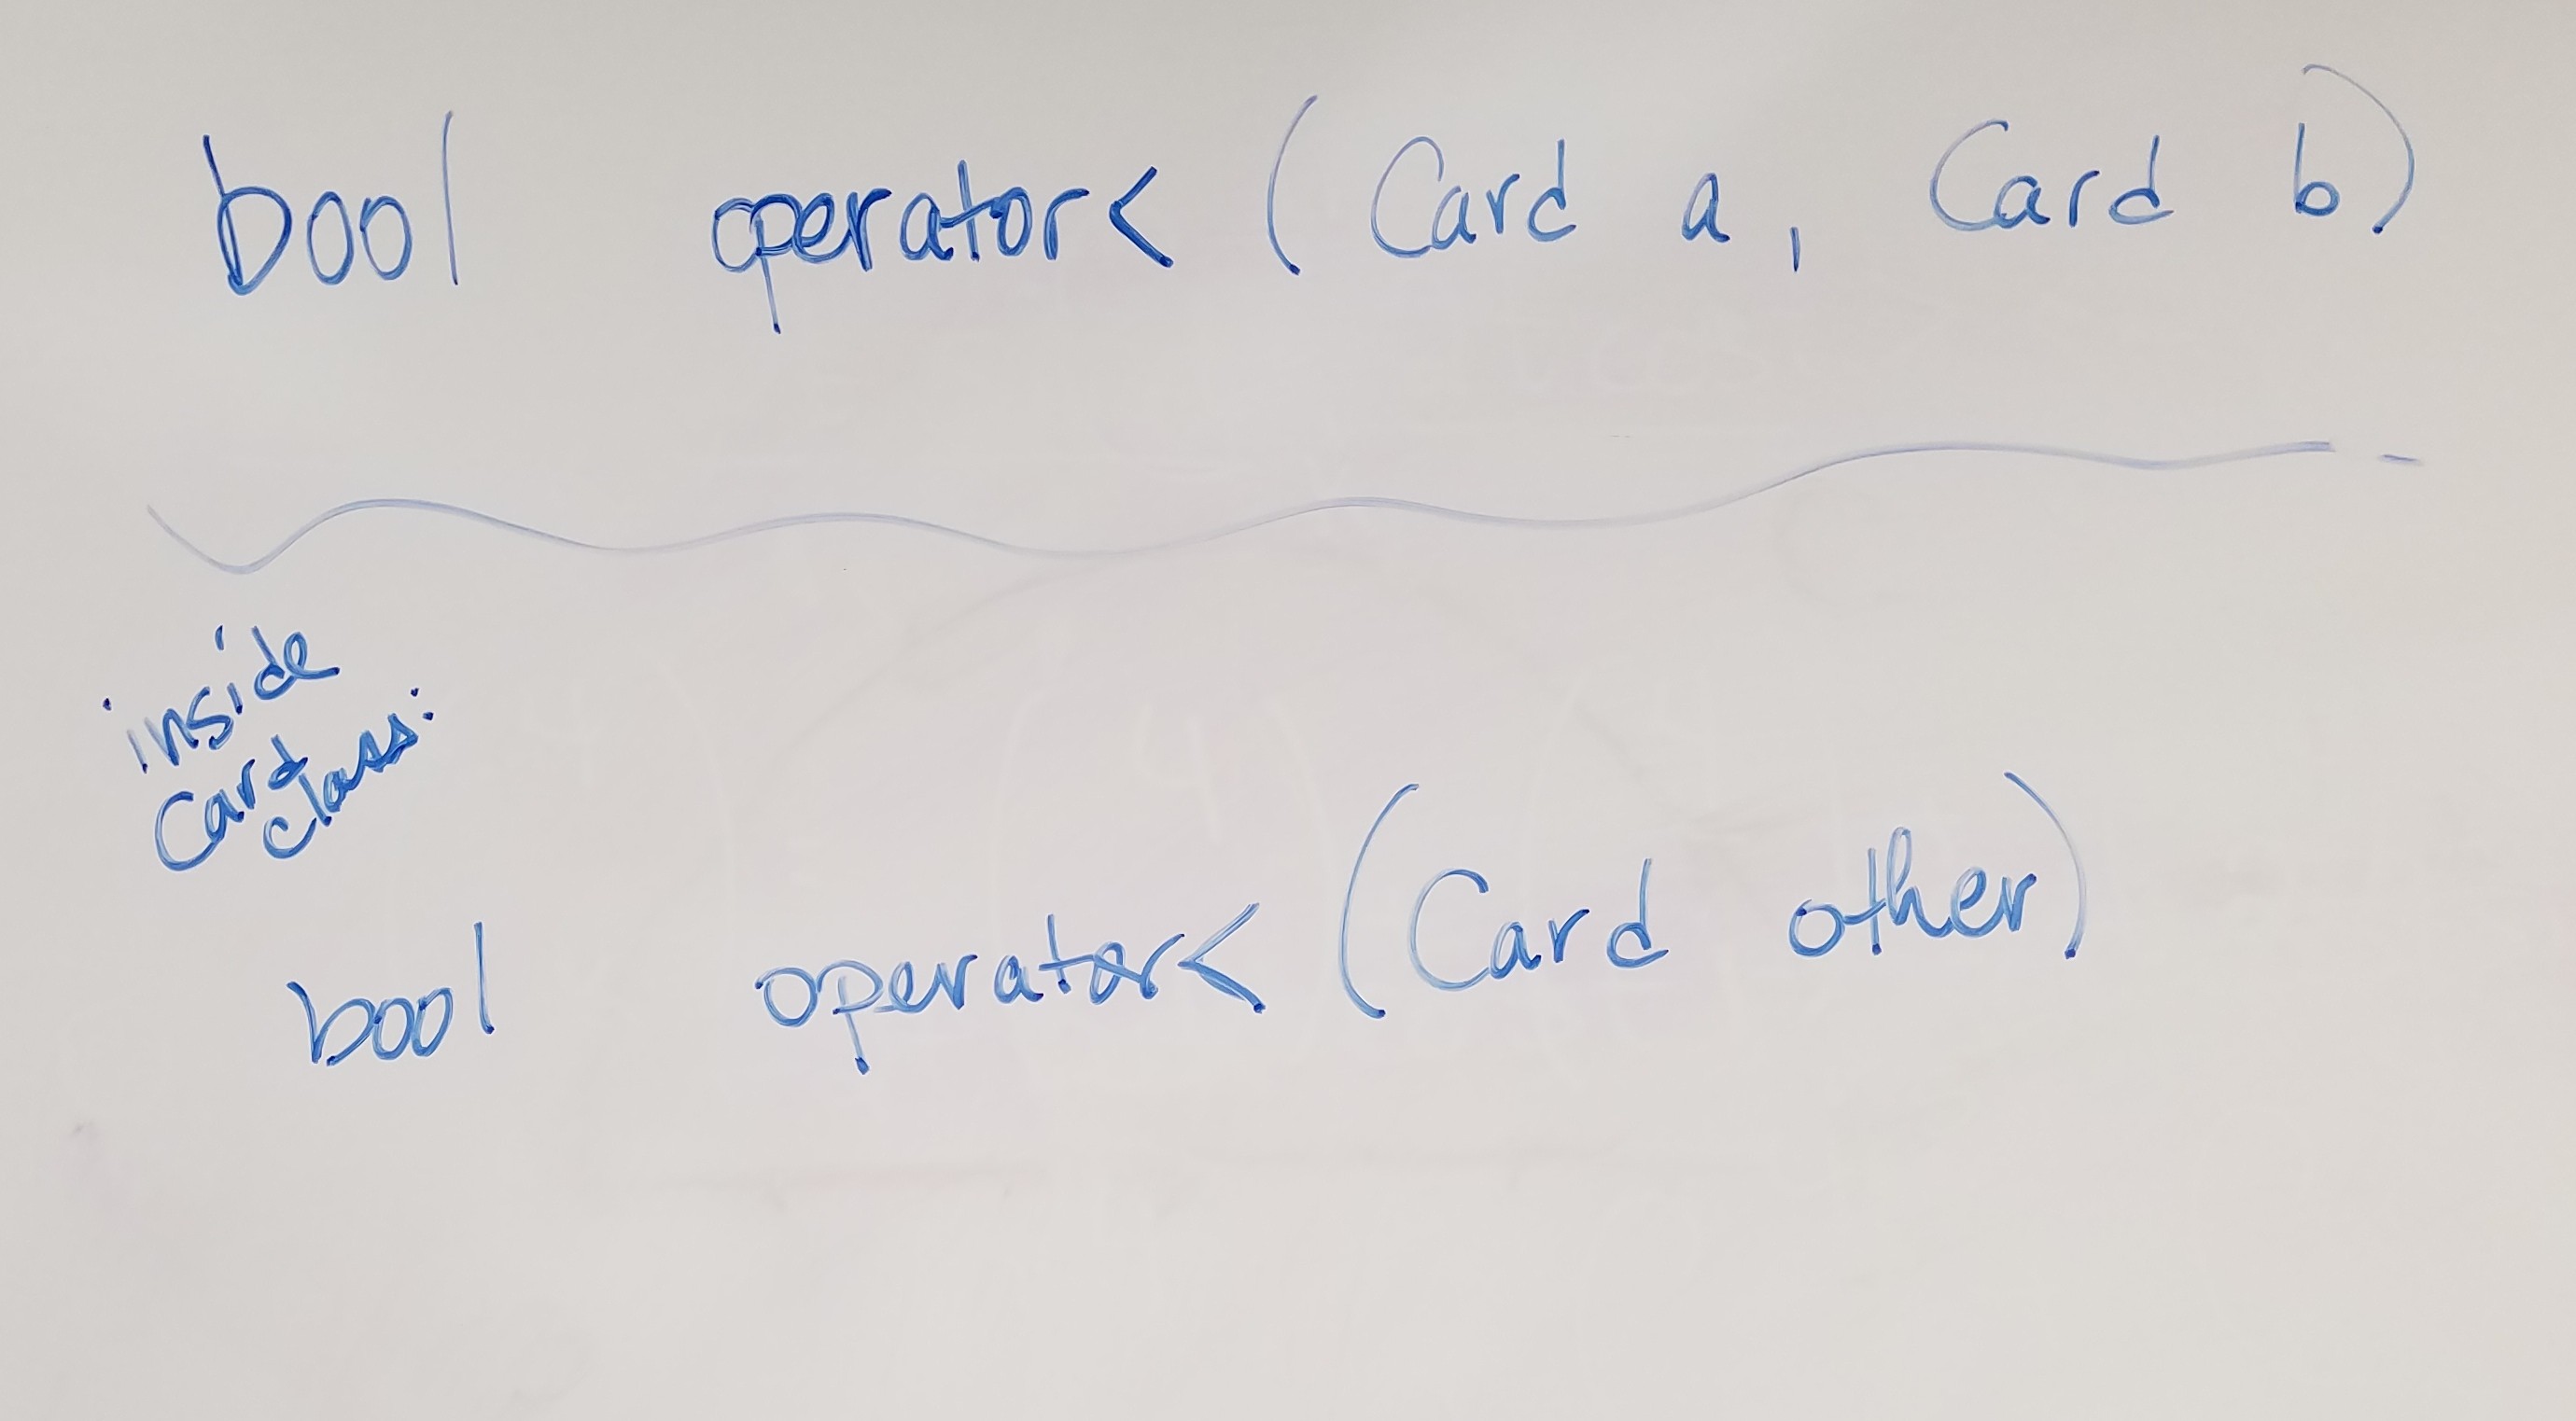 bool operator< (Card a, Card b)
inside
Card
class:
bool operator< (Card other)